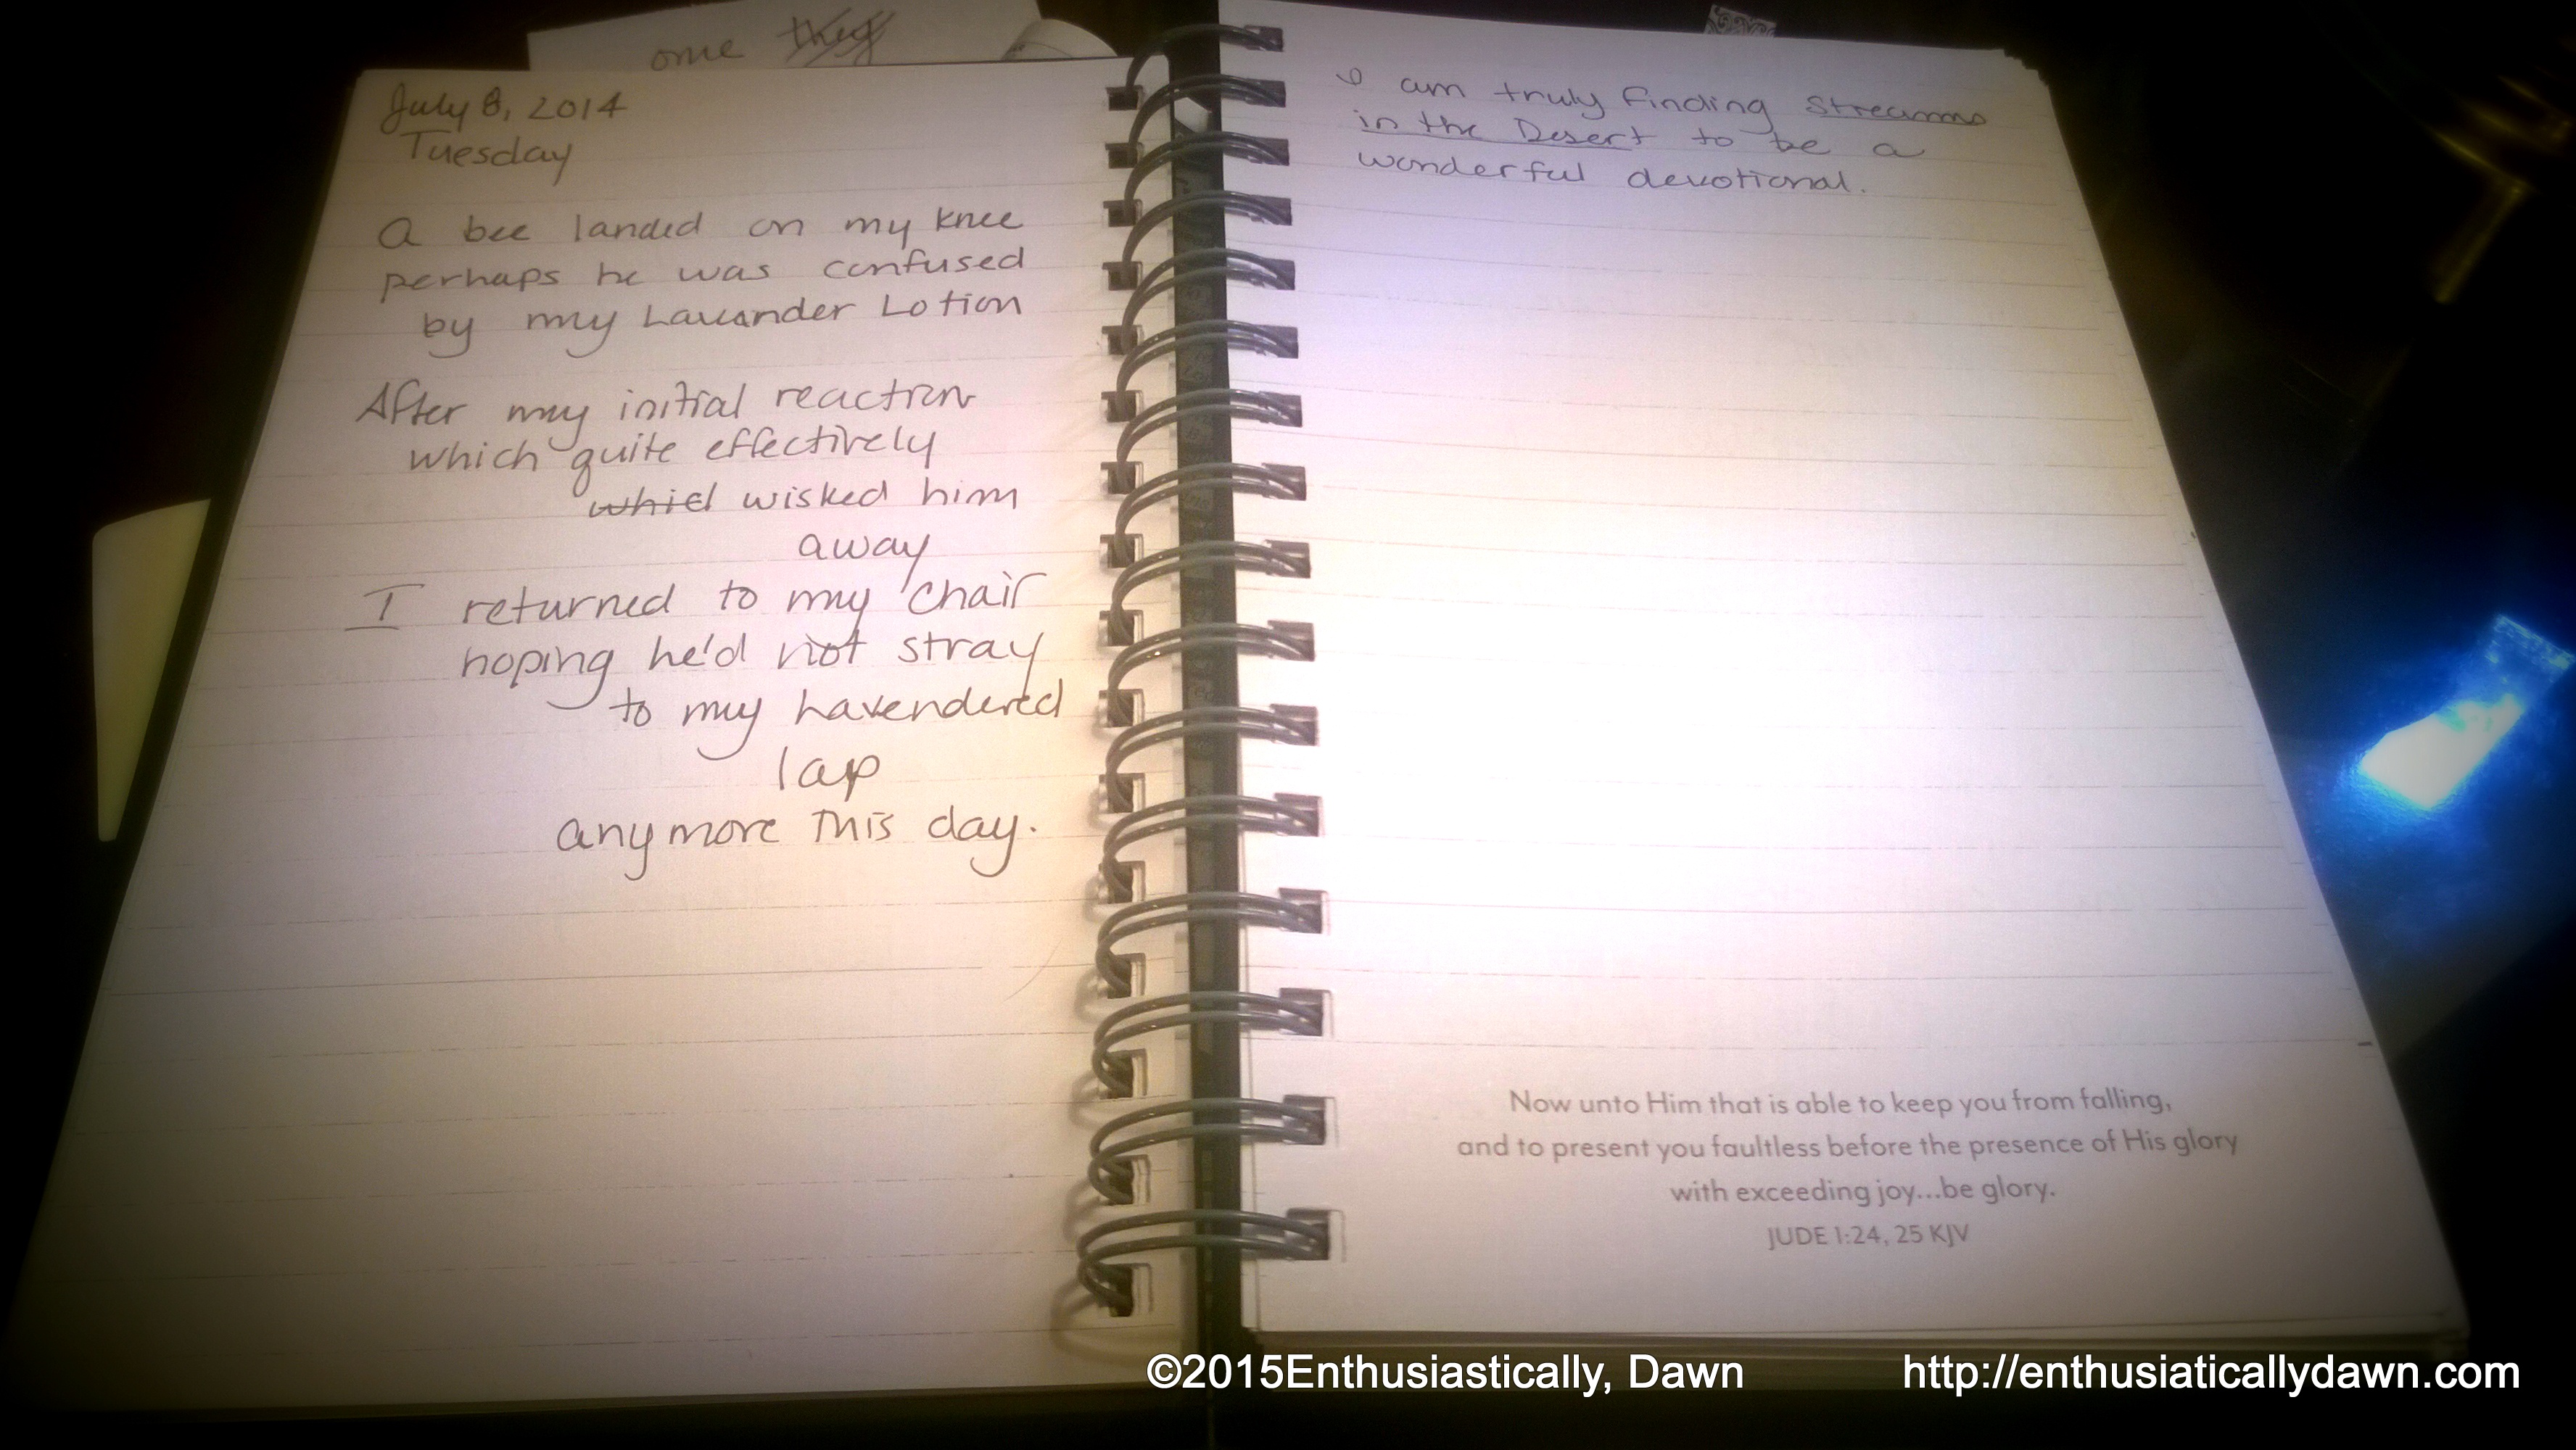 ome they
July 8, 2014
Tuesday
A bee landed on my knee
perhaps he was confused
by my Lavander Lotion
After my initial reaction
which quite effectively
whicl wisked him
away
I returned to my chair
hoping he'd not stray
to my Lavendered
lap
anymore This day.
I am truly finding Streams
in the Desert to be a
wonderful devotional.
Now unto Him that is able to keep you from falling,
and to present you faultless before the presence of His glory
with exceeding joy...be glory.
JUDE 1:24, 25 KJV
©2015Enthusiastically, Dawn
http://enthusiaticallydawn.com